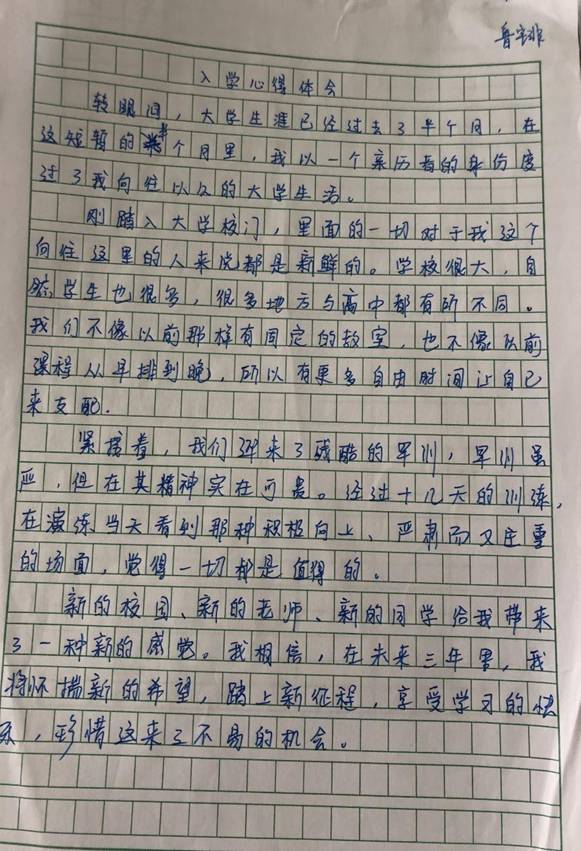 鲁
入学心得体会
转眼间，大学生涯已经过去了半个月，在
这短暂的半个月里，我以一个亲历者的身份度
过了我向往以久的大学生活。
刚踏入大学校门，里面的一切对于我这个
向往这里的人来说都是新鲜的。学校很大，自
然学生也很多，很多地方与高中都有所不同。
我们不像以前那样有固定的教室，也不像以前
课程从早排到晚，所以有更多自由时间让自己
来支配.
紧接着，我们迎来了残酷的军训，军训虽
严，但在其精神实在可贵。经过十几天的训练，
在演练当天看到那种积极向上、严肃而又庄重
的场面，觉得一切都是值得的。
新的校园、新的老师、新的同学给我带来
了一种新的感觉。我相信，在未来三年里，我
将怀揣新的希望，踏上新征程，享受学习的快
乐，珍惜这来之不易的机会。